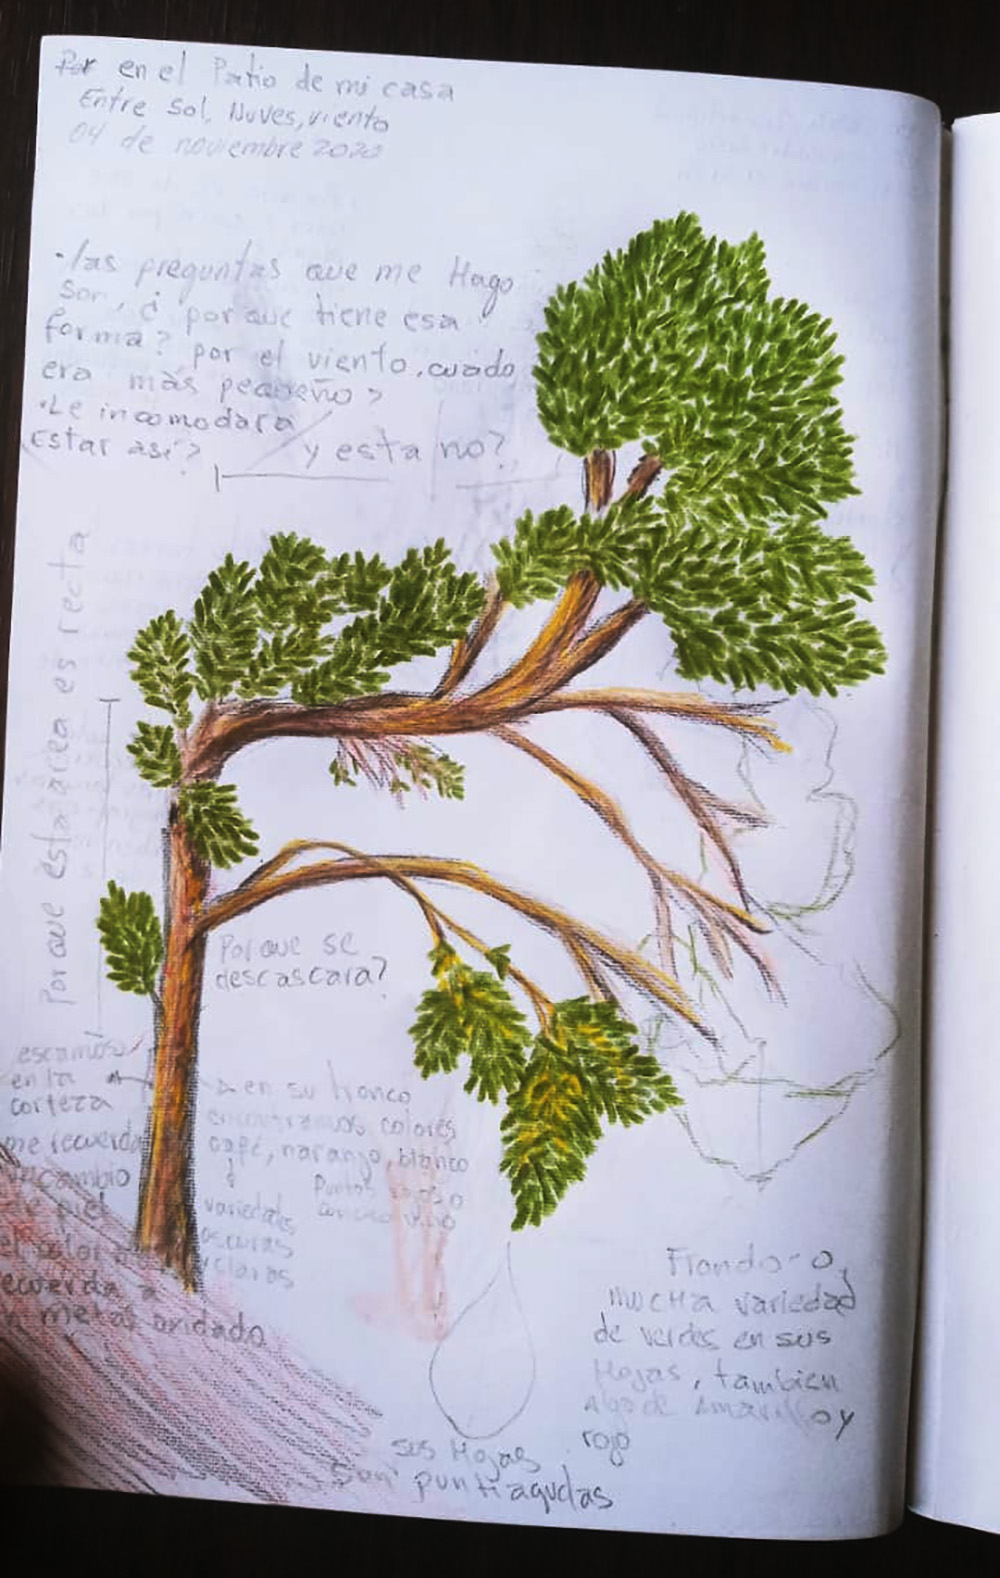 en el Patio de mi casa
Entre Sol, Nuves, viento
04 de noviembre 2020
• las preguntas que me Hago
son, ¿ porque tiene esa
forma? por el viento, cuado
era más pequeño?
• Le incomodara
Estar así?
y esta no?
Porque esta area es recta
Porque se
descascara?
escamoso
en la
corteza
me recuerda
un cambio
de piel
el color
recuerda a
metal oxidado
en su tronco
encontramos colores
café, naranjo, blanco
Puntos
variedades
oscuras
y claras
Frondoso,
mucha variedad
de verdes en sus
Hojas, tambien
Algo de Amarillo y
rojo
sus Hojas
Son puntiagudas